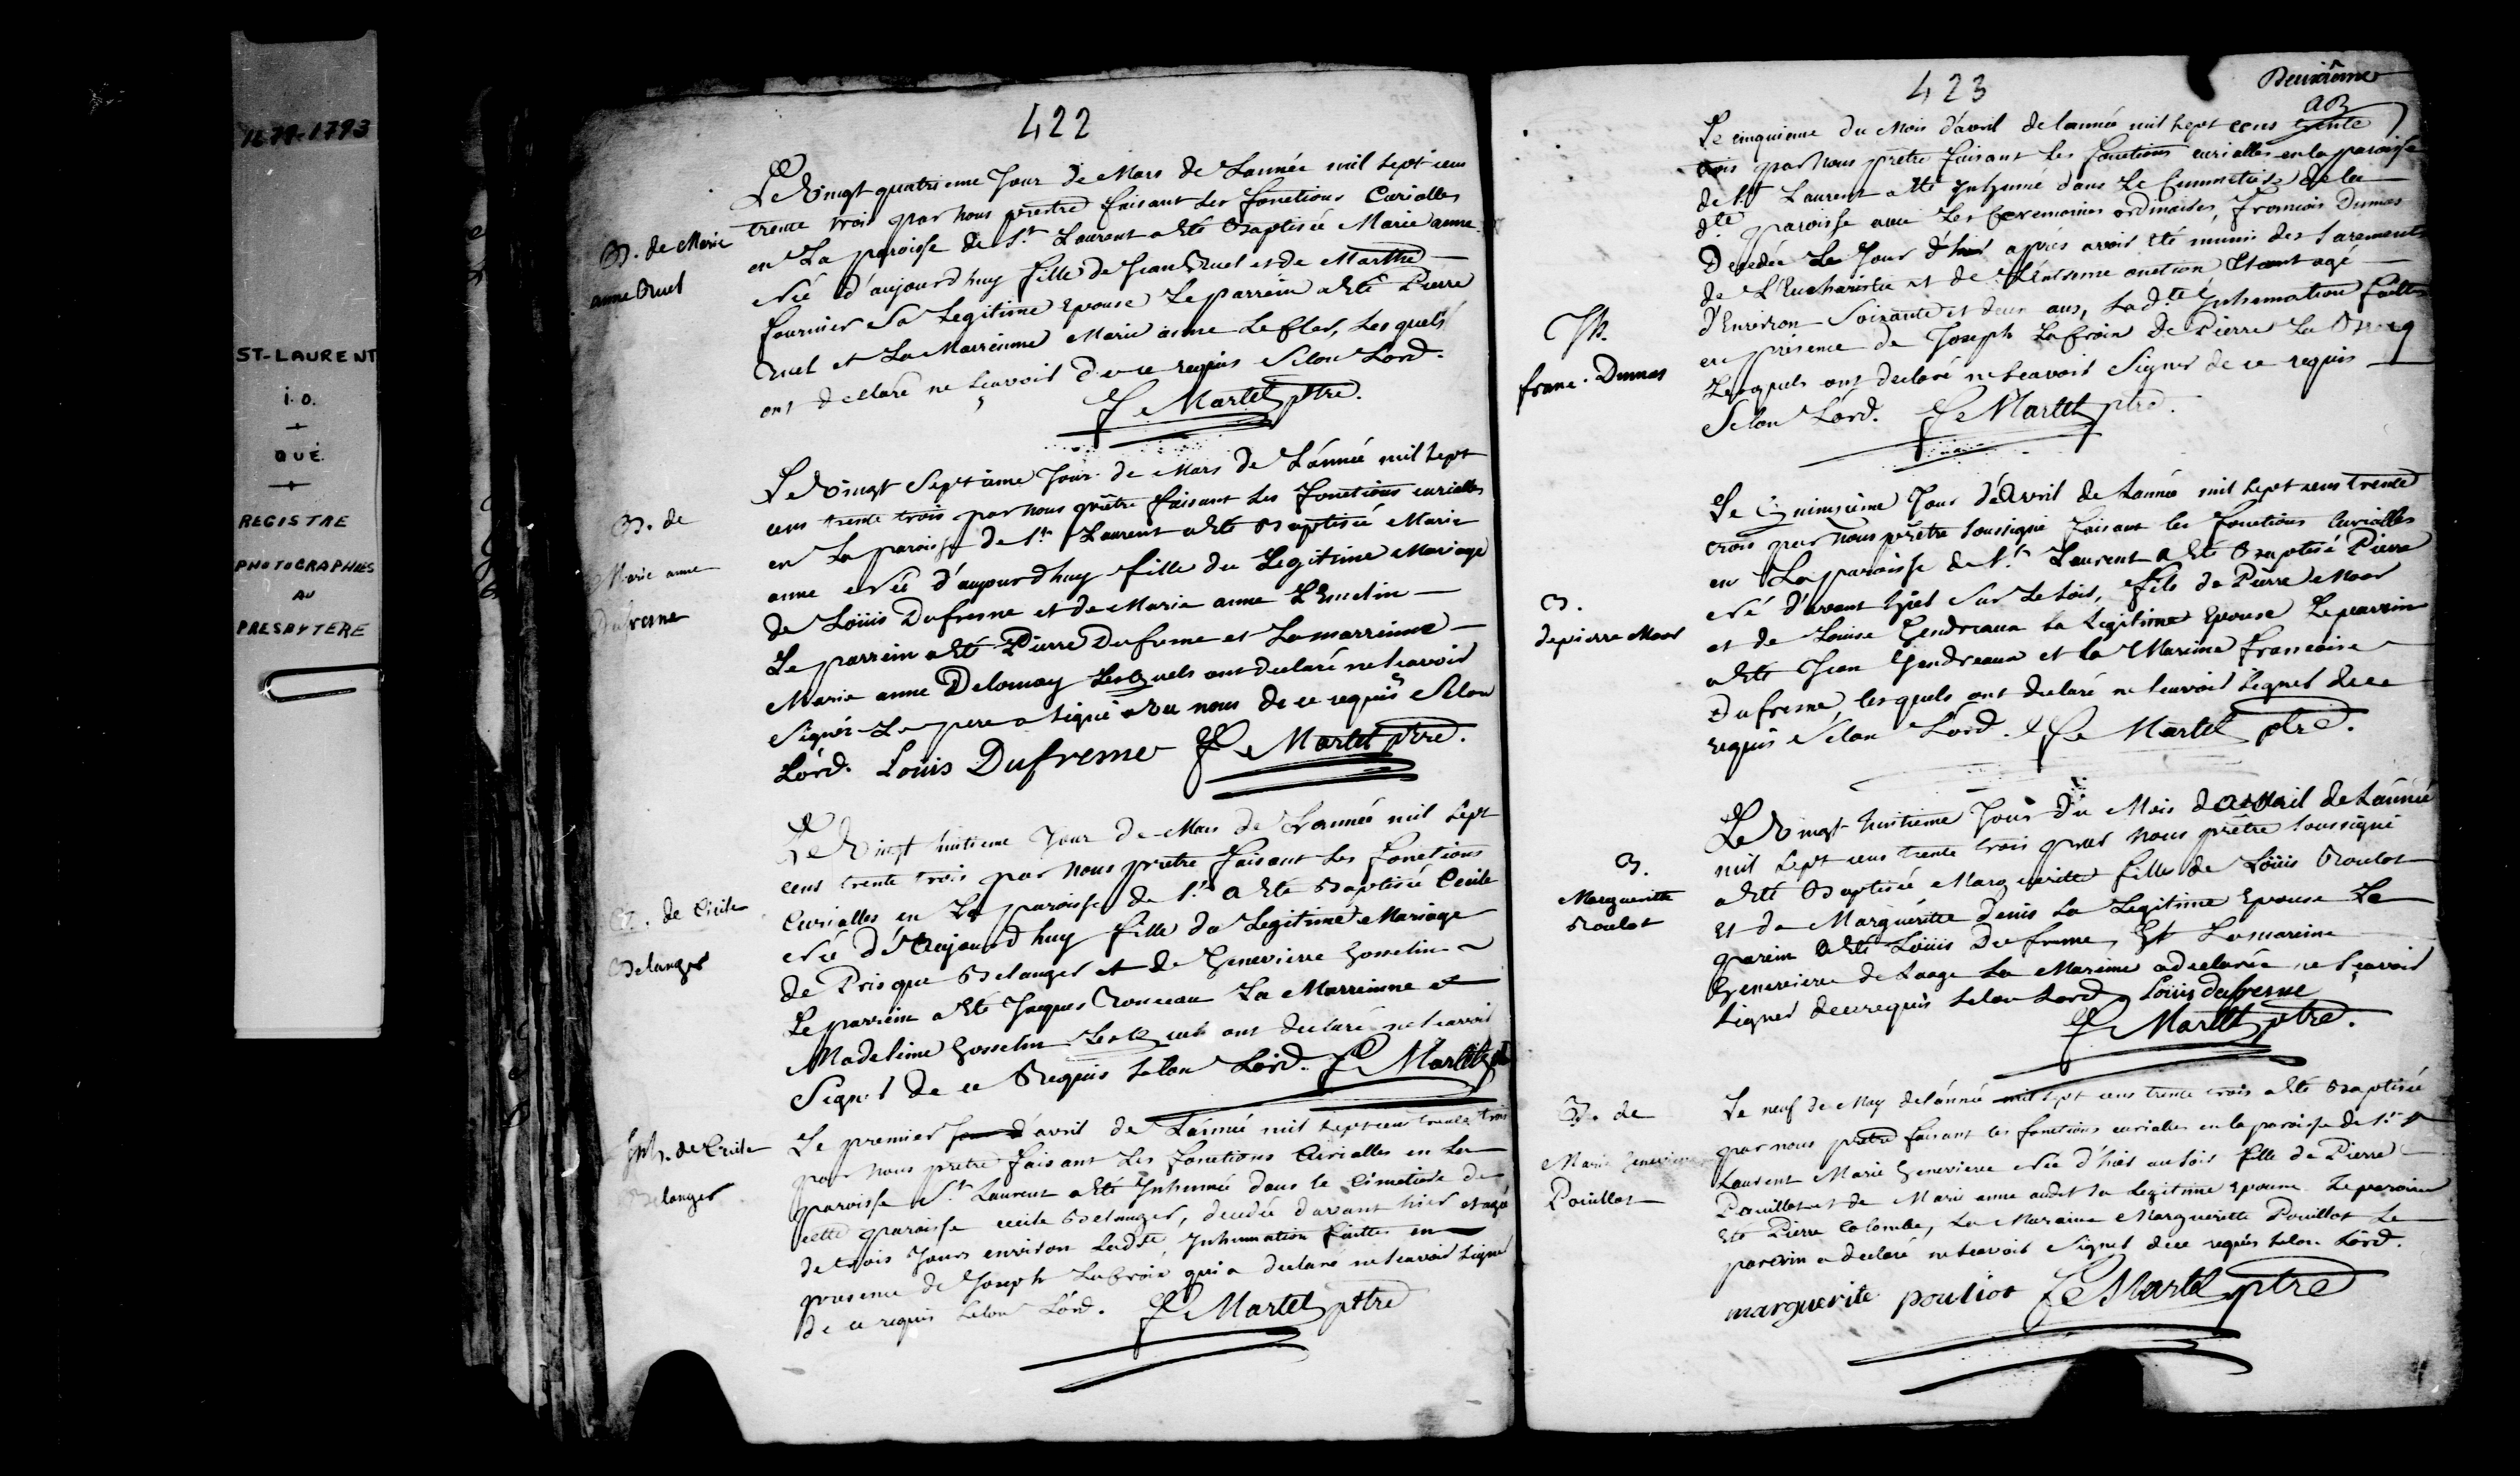 1679-1793
ST-LAURENT
i.o.
QUÉ.
REGISTRE
PHOTOGRAPHIES
AU
PRESBYTERE
422
B. de Marie
anne Ruel
Le vingt quatrieme Jour de Mars de Lannée mil sept cens
trente trois par nous prestre faisant les fonctions Curialles
en La paroisse de St. Laurent a été Baptisée Marie anne
Née d'aujourdhuy fille de Jean Ruel et de Marthe
fournier Sa Legitime Epouse Le parrein a été Pierre
Ruel et La Marreinne Marie anne Leflar, Lesquels
ont declaré ne sçavoir de ce requis Selon Lord.
F e Martel ptre.
B. de
Marie anne
Dufresne
Le vingt Septieme Jour de Mars de L'année mil sept
cens trente trois par nous prêtre faisant les fonctions curialles
en La paroisse de St. Laurent a été Baptisée Marie
anne Née d'aujourdhuy fille du Legitime Mariage
de Loüis Dufresne et de Marie anne L'Emelin
Le parrein a été Pierre Dufresne et La marreinne
Marie anne Delaunay Lesquels ont declaré ne scavoir
Signér Le pere a signé avec nous de ce requis Selon
L'ord. Louis Dufresne F e Martel ptre.
B. de Cicile
Belanger
Le vingt huitieme Jour de Mars de L'année mil sept
cens trente trois par nous prêtre faisant les fonctions
Curialles en La paroisse de St. a été Baptisée Cecile
Née d'Aujourdhuy fille du Legitime Mariage
de Prisque Belanger et de Genevieve Gosselin
Le parrein a été Jaques Ronceau La Marreinne et
Madeleine Gosselin Lesquels ont declaré ne scavoir
Signer de ce Requis selon Lord. F e Martel
Inh. de Cicile
Belanger
Le premier Jour d'avril de L'année mil sept cens trente trois
par nous prêtre faisant les fonctions Curialles en La
paroisse St. Laurent a été Inhumée dans le Cimetiere de
cette paroisse cecile Belanger, decedée d'avant hier et agée
de trois Jours environ Ladte. Inhumation faitte en
presence de Joseph Lafroix qui a declaré ne scavoir signer
de ce requis selon Lórd. F e Martel ptre
423
Deuxiême
Jh.
franc. Dumas
Le cinquieme du Mois d'avril de lannée mil sept cens trente
trois par nous prêtre faisant les fonctions curialles en la paroisse
de St. Laurent a été Inhumé dans Le Cimmetiere de la
dte. paroisse avec Les Ceremonies ordinaires, Francois Dumas
Decedée Le Jour d'hier aprés avoir été munis des Sacrements
de L'Eucharistie et de L'extreme onction Etant agé
d'Environ Soixante et deux ans, Ladte. Inhumation faitte
en présence de Joseph Lafroix de Pierre La
Lesquels ont declaré ne scavoir Signer de ce requis
Selon Lórd. F e Martel ptre.
B.
de pierre Moor
Le Quinzieme Jour d'Avril de Lannée mil sept cens trente
trois par nous prêtre soussigné faisant les fonctions Curialles
en La paroisse de St. Laurent a été Baptisé Pierre
Né d'avant hier Sur Le soir, fils de Pierre Moor
et de Louise Gendreaux Sa Legitime Epouse Le parrein
a été Jean Gendreaux et la Mareine francoise
Dufresne lesquels ont declaré ne scavoir signer de ce
requis Selon Lord. F e Martel ptre.
B.
Marguerite
Roulot
Le vingt huitieme Jour du Mois d'Avril de Lannée
mil sept cens trente trois par nous prêtre soussigné
a été Baptisée Marguerite fille de Loüis Roulot
et de Marguérite Denis Sa Legitime Epouse Le
parein a été Loüis Dufresne Et La mareine
Genevieve de Laage La Mareine a declarée ne sçavoir
signer de ce requis selon Lord Louis dufresne
F e Martel ptre.
B. de
Marie Genevieve
Poüillot
Le neuf de May de l'année mil sept cens trente trois a été Baptisée
par nous prêtre faisant les fonctions curialles en la paroisse de St.
Laurent Marie Genevieve Née d'hier au soir fille de Pierre
Pouillot et de Marie anne audet Sa Legitime Epouse Le parein a
été Pierre Colombe, La Maraine Marguerite Pouillot Le
parein a declaré ne scavoir Signer de ce requis selon Lórd.
marguerite pouliot F e Martel ptre